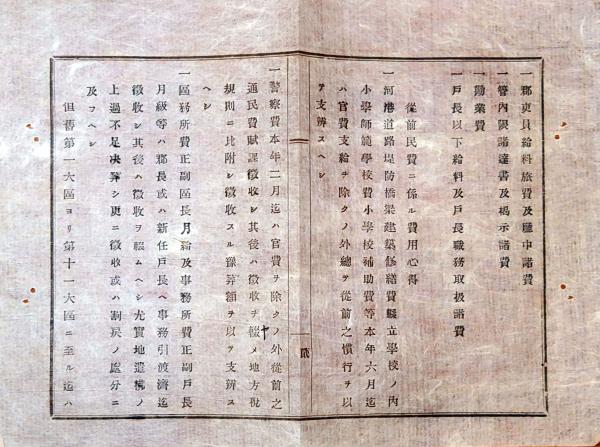 一郡吏員給料旅費及廳中諸費
一管內限諸達書及揭示諸費
一勸業費
一戶長以下給料及戶長職務取扱諸費
從前民費ニ係ル費用心得
一河港道路堤防橋梁建築修繕費縣立學校ノ內
小學師範學校費小學校補助費等本年六月迄
ハ官費支給ヲ除クノ外總テ從前之慣行ヲ以
テ支辨スヘシ
一警察費本年二月迄ハ官費ヲ除クノ外從前之
通民費賦課徵收シ其後ハ徵收ヲ輟メ地方稅
規則ニ比附シ徵收スル豫算額ヲ以テ支辨ス
ヘシ
一區務所費正副區長月給及事務所費正副戶長
月級等ハ郡長或ハ新任戶長ヘ事務引渡濟迄
徵收シ其後ハ徵收ヲ輟ムヘシ尤實地遣拂ノ
上過不足決算シ更ニ徵收或ハ割戾ノ處分ニ
及フヘシ
但舊第一大區ヨリ第十一大區ニ至ル迄ハ